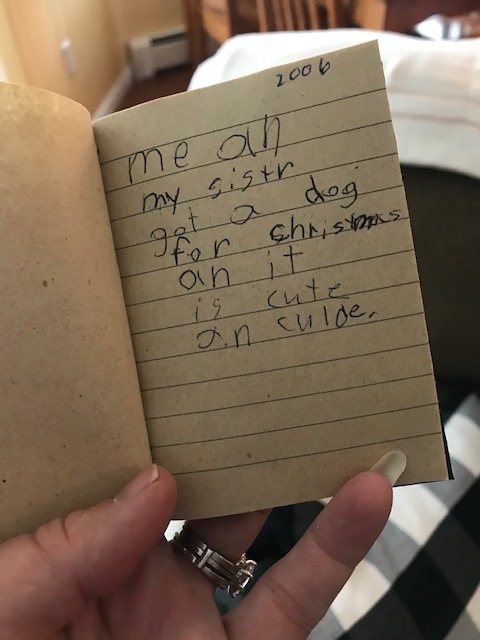 2006
me an
my sistr
got a dog
for christmas
an it
is cute
an culde.